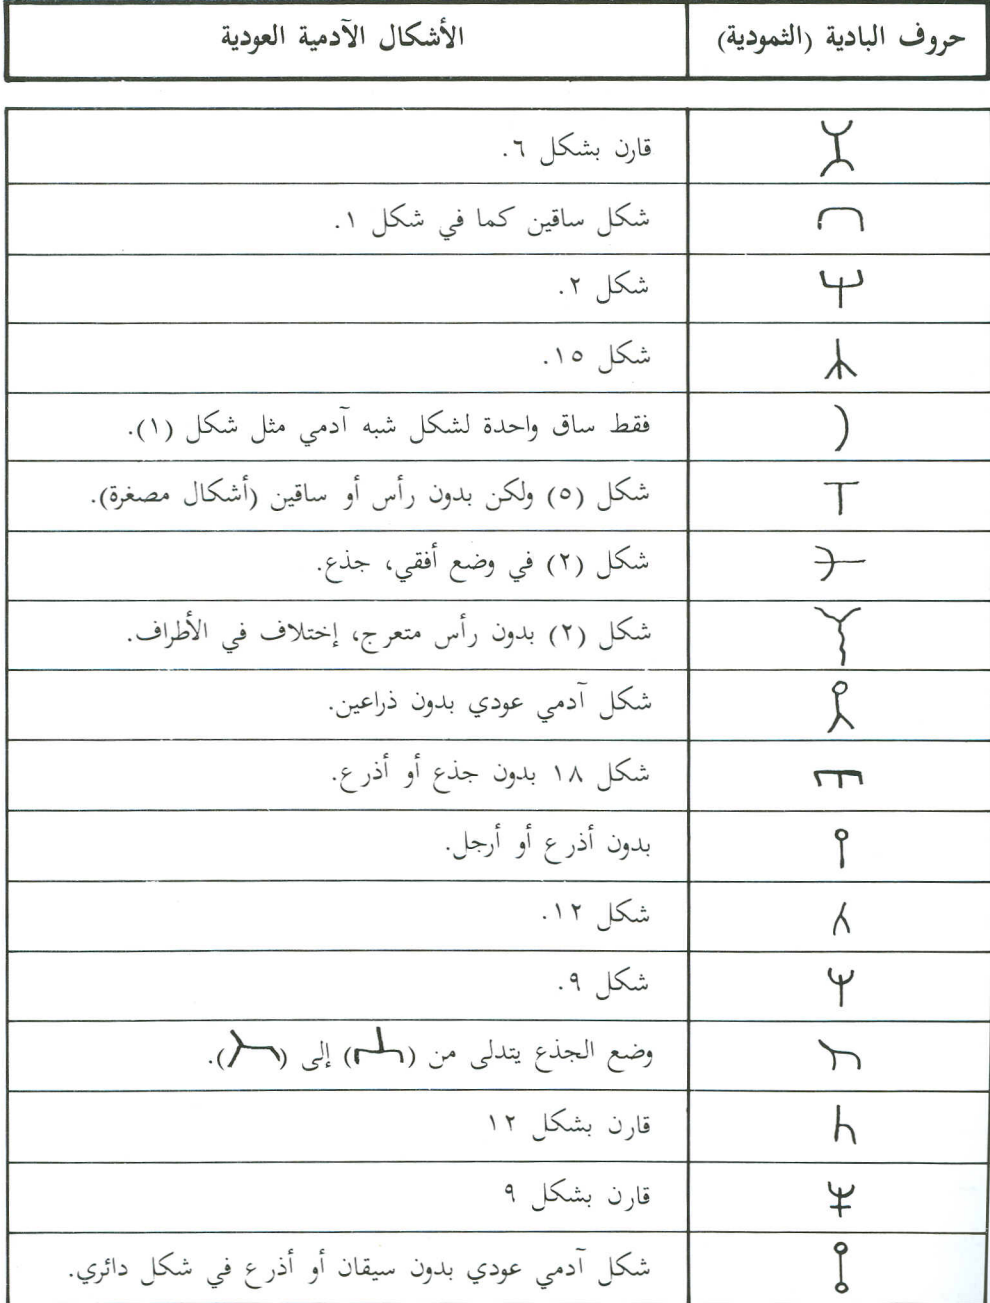 حروف البادية (الثمودية) الأشكال الآدمية العودية
قارن بشكل ٦.
شكل ساقين كما في شكل ١.
شكل ٢.
شكل ١٥.
فقط ساق واحدة لشكل شبه آدمي مثل شكل (١).
شكل (٥) ولكن بدون رأس أو ساقين (أشكال مصغرة).
شكل (٢) في وضع أفقي، جذع.
شكل (٢) بدون رأس متعرج، إختلاف في الأطراف.
شكل آدمي عودي بدون ذراعين.
شكل ١٨ بدون جذع أو أذرع.
بدون أذرع أو أرجل.
شكل ١٢.
شكل ٩.
وضع الجذع يتدلى من ( ) إلى ( ).
قارن بشكل ١٢
قارن بشكل ٩
شكل آدمي عودي بدون سيقان أو أذرع في شكل دائري.